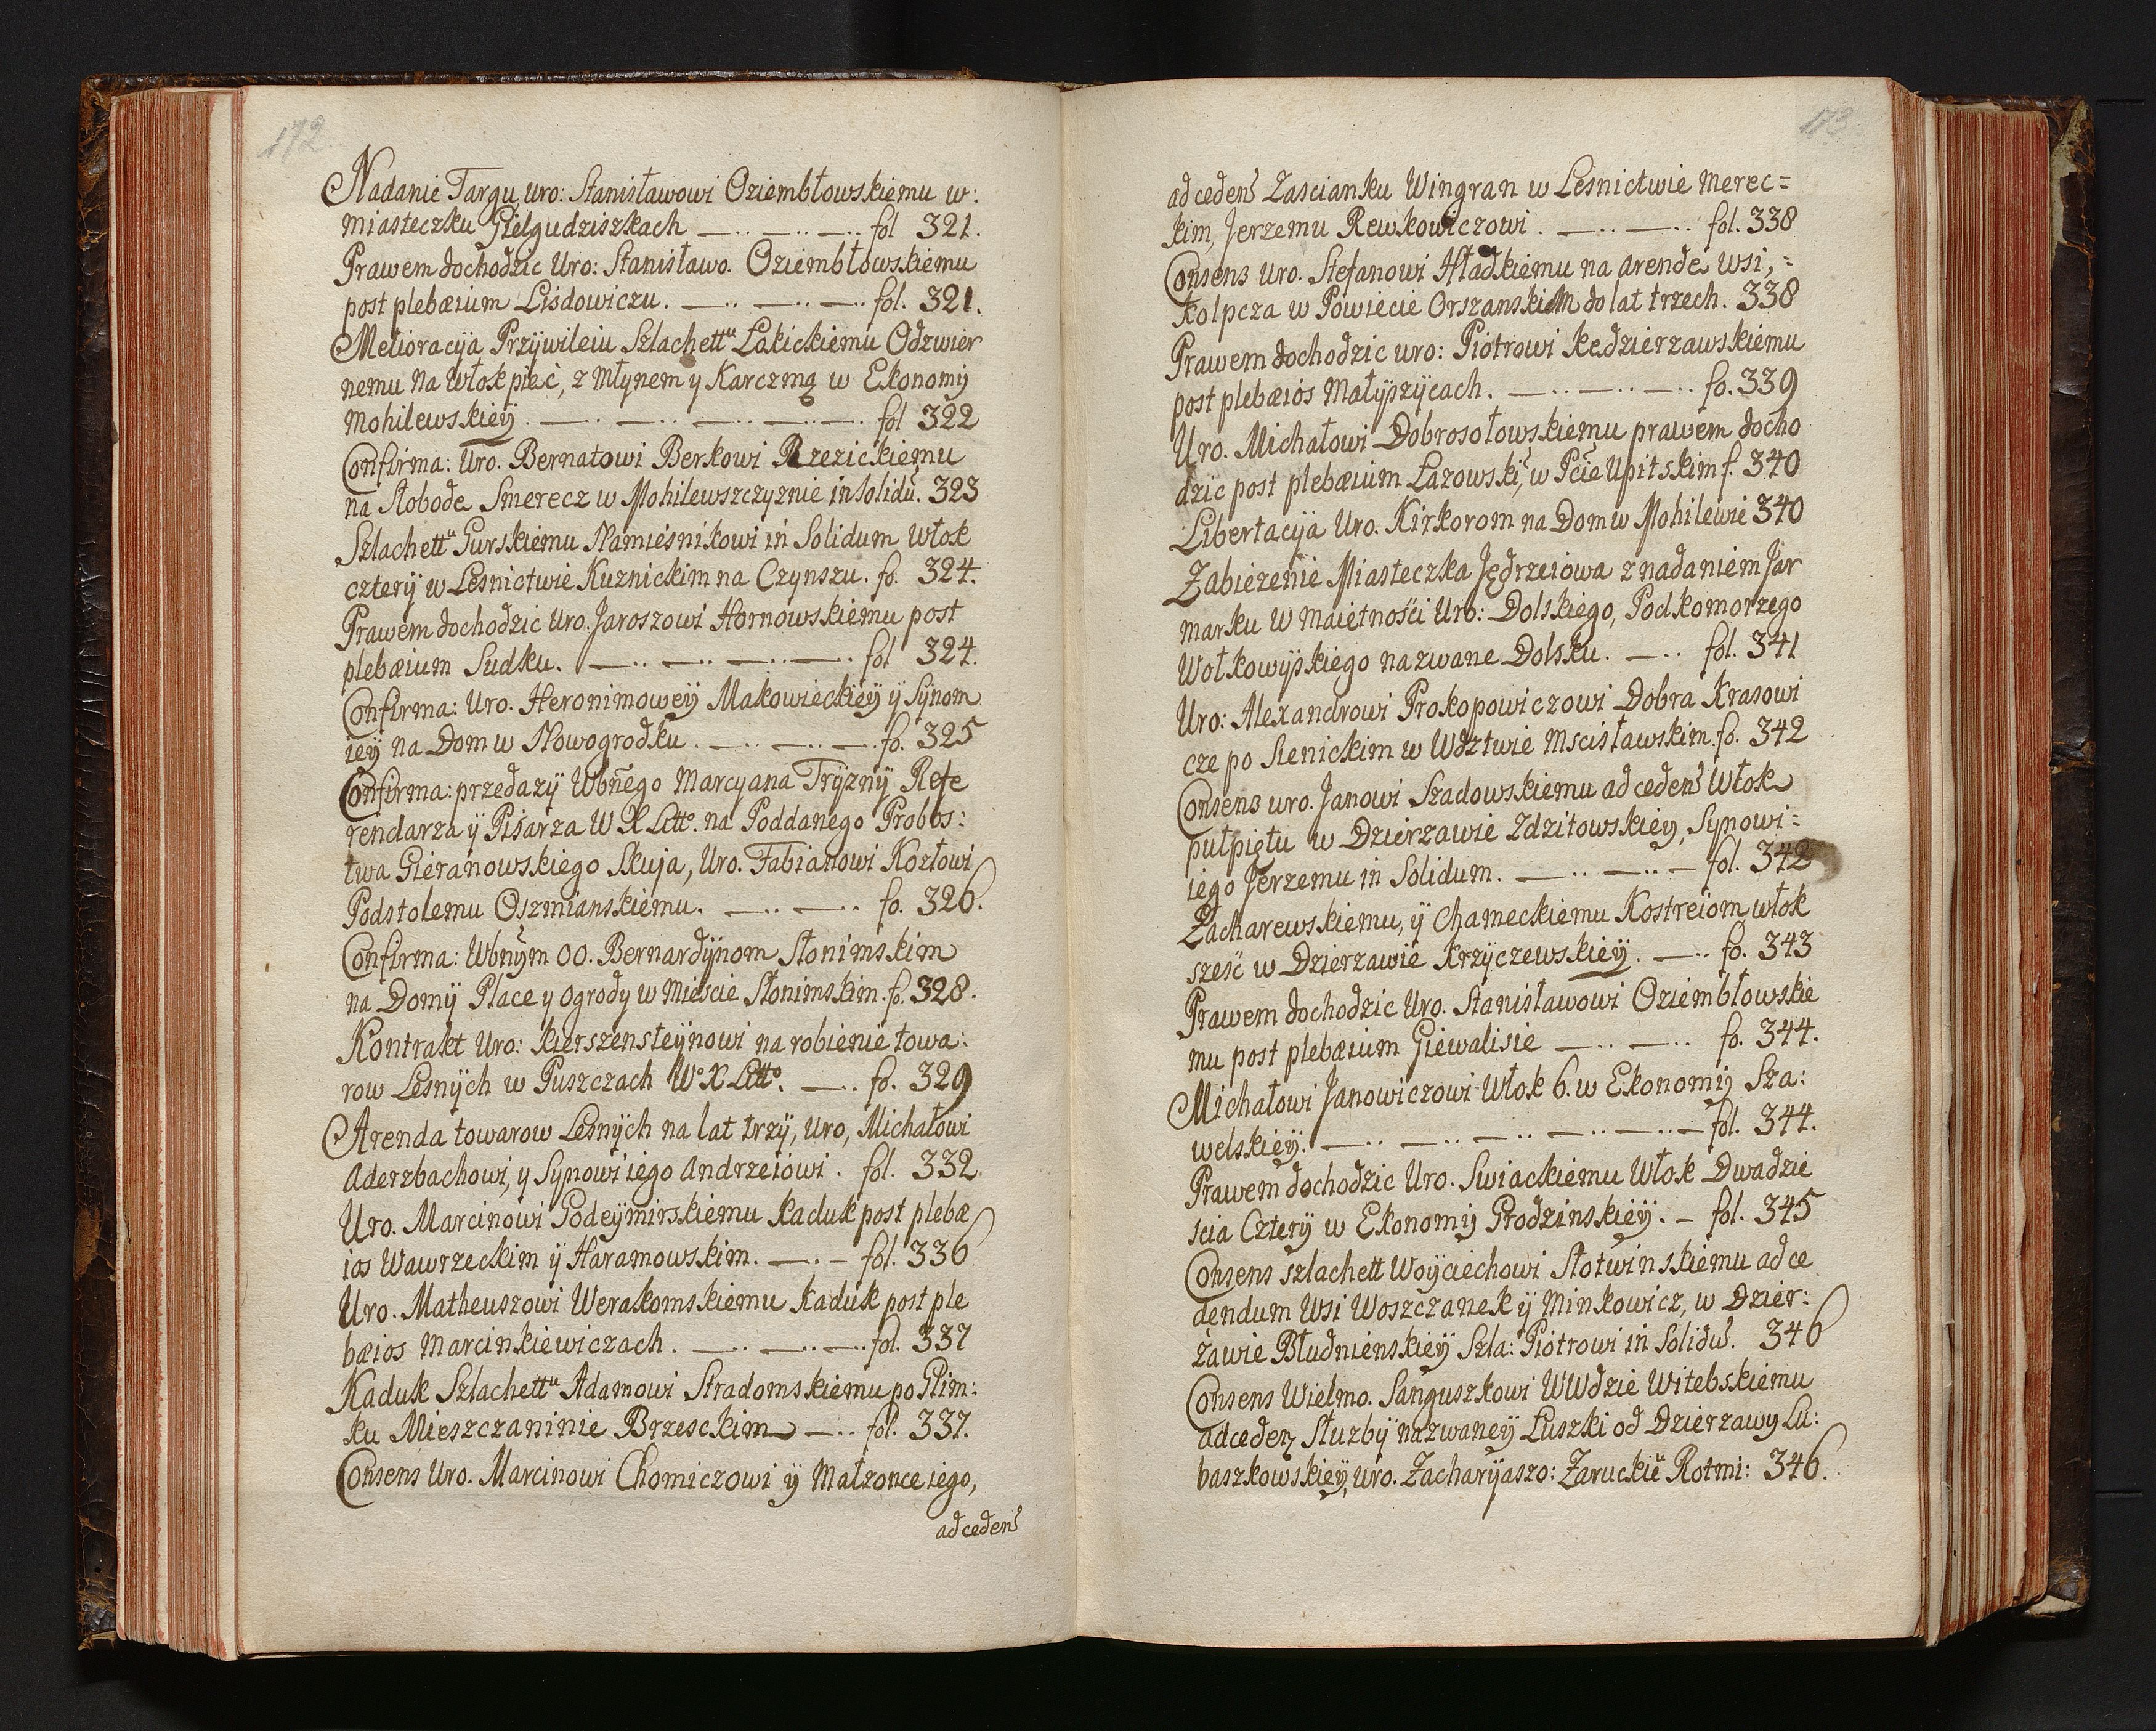 172.
Nadanie Targu uro: Stanisławowi Oziembłowskiemu w:
Miasteczku Gielgudziszkach — .. — .. — .. fol 321.
Prawem dochodzic Uro: Stanisławo. Oziembłowskiemu
post plebæium Lisdowiczu. — .. — .. — .. fol. 321.
Melioracÿa Przÿwileiu Szlachettu Łakickiemu Odzwier
nemu na włok pięć, z Młynem y Karczmą w Ekonomÿ
Mohilewskieÿ. — .. — .. — .. — .. — .. fol 322
Confirma: Uro. Bernatowi Berkowi Rzezickiemu
na Słobodę Smerecz w Mohilewszczyznie in Solidū. 323
Szlachettu Gurskiemu Namiesnikowi in Solidum Włok
czterÿ w Lesnictwie Kuznickim na Czynszu. fo. 324.
Prawem dochodzic Uro. Jaroszowi Hornowskiemu post
plebæium Sudsku. — .. — .. — .. — .. fol 324.
Confirma: Uro. Heronimoweÿ Makowieckieÿ ÿ Sÿnom
ieÿ na Dom w Nowogrodku. — .. — .. — . fo. 325
Confirma: przedazÿ Wbnego Marcyana Trÿznÿ Refe
rendarza ÿ Pisarza W X Litto. na Poddanego Probos:
twa Gieranowskiego Skuja, Uro. Fabianowi Kozłowi
Podstolemu Oszmianskiemu. — .. — .. fo. 326.
Confirma: Wbnÿm OO. Bernardÿnom Słonimskim
na Domÿ Place y Ogrody w Miescie Słonimskim. fo. 328.
Kontrakt Uro: Kierszensteÿnowi na robienie towa:
row Lesnÿch w Puszczach Wo X Litto. — .. fo. 329
Arenda towarow Lesnÿch na lat trzÿ, uro, Michałowi
Aderzbachowi, y Synowi iego Andrzeiowi. fol. 332
Uro. Marcinowi Podeÿmirskiemu Kaduk post plebæ
ios Wawrzeckim ÿ Haramowskim. — .. – fol. 336
Uro. Matheuszowi Werakomskiemu Kaduk post ple
bæios Marcinkiewiczach. — .. — .. — .. fol. 337
Kaduk Szlachettu Adamowi Stradomskiemu po Glim:
ku Mieszczaninie Brzesckim — .. fol. 337.
Consens Uro. Marcinowi Chomiczowi ÿ Małzonce iego,
ad ceden
173
ad ceden Zascianku Wingran w Lesnictwie Merec=
kim, Jerzemu Rewkowiczowi. — .. — .. fol. 338
Consens Uro. Stefanowi Hładkiemu na arendę wsi, =
Kolpcza w Powiecie Orszanskim do lat trzech. 338
Prawem dochodzic uro: Piotrowi Kędzierzawskiemu
post plebæios Małÿszÿcach. — .. — .. — .. fo. 339
Uro. Michałowi Dobrosołowskiemu prawem docho
dzic post plebæium Łazowskī, w Pcie Upitskim f. 340
Libertacÿa Uro. Kirkorom na Dom w Mohilewie 340
Zabiezenie Miasteczka Jędrzeiowa z nadaniem Jar
marku w Maiętnosci Uro: Dolskiego, Podkomorzego
Wołkowÿskiego nazwane Dolsku. — .. fol. 341
Uro: Alexandrowi Prokopowiczowi Dobra Krasowi
cze po Sienickim w Wdztwie Mscisławskim. fo. 342
Consens uro. Janowi Szadowskiemu ad ceden Włok
pułpiętu w Dzierzawie Zdzitowskieÿ, Synowi=
iego Jerzemu in Solidum. — .. — .. – fol. 342
Zacharewskiemu, ÿ Chameckiemu Kostreiom włok
sześć w Dzierzawie Krzÿczewskieÿ. — .. fo. 343
Prawem dochodzic Uro. Stanisławowi Oziembłowskie
mu post plebæium Giewalisie — .. — .. fo. 344.
Michałowi Janowiczowi Włok 6. w Ekonomÿ Sza:
welskieÿ. — .. — .. — .. — .. — .. – fol. 344.
Prawem dochodzic Uro. Swiackiemu Włok Dwadzie
scia Czterÿ w Ekonomÿ Grodzinskieÿ. – fol. 345
Consens szlachett Woÿciechowi Słotwinskiemu ad ce
dendum Wsi Woszczanek ÿ Minkowicz, w Dzier:
żawie Błudnienskieÿ Szla: Piotrowi in Solidū. 346
Consens Wielmo. Sanguszkowi WWdzie Witebskiemu
ad ceden Słuzbÿ nazwaneÿ Łuszki od Dzierzawy Lu:
baszkowskieÿ, uro. Zacharÿaszo: Zaruckiu Rotmi: 346.